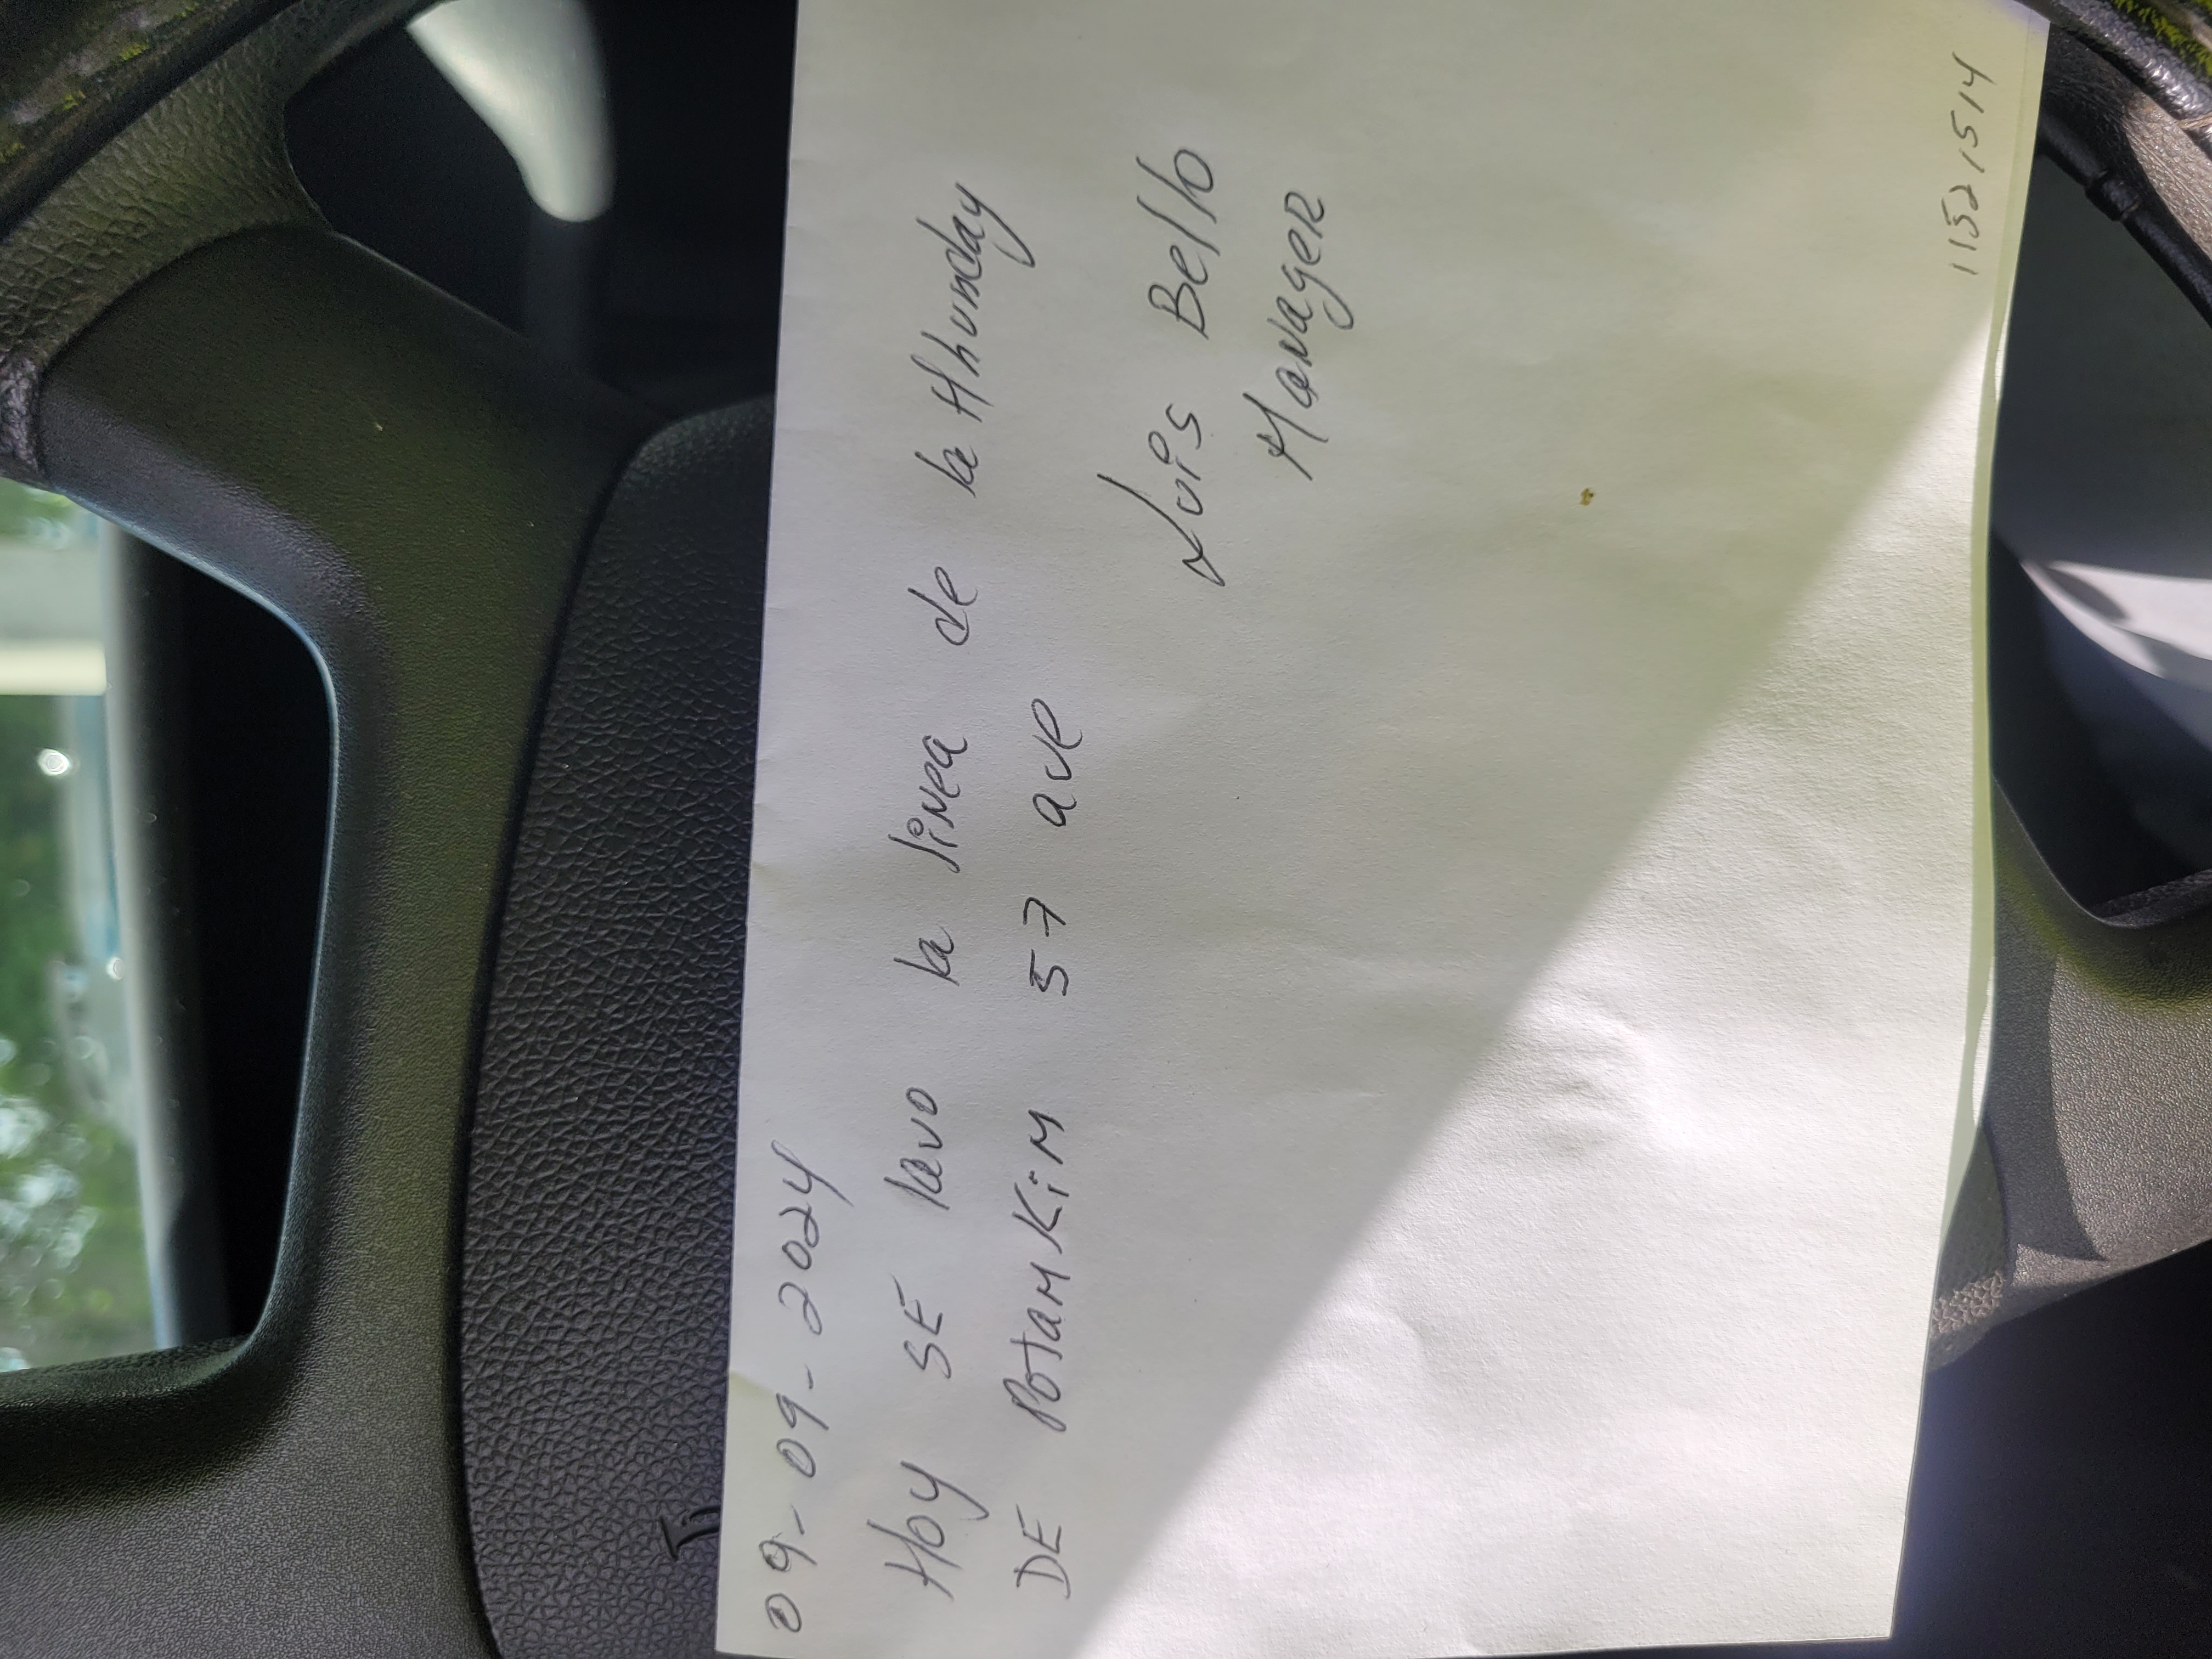 09-09-2024
Hoy SE lavo la linea de la Hhunday
DE PotamKim 57 ave
Luis Bello
Manager
11521514